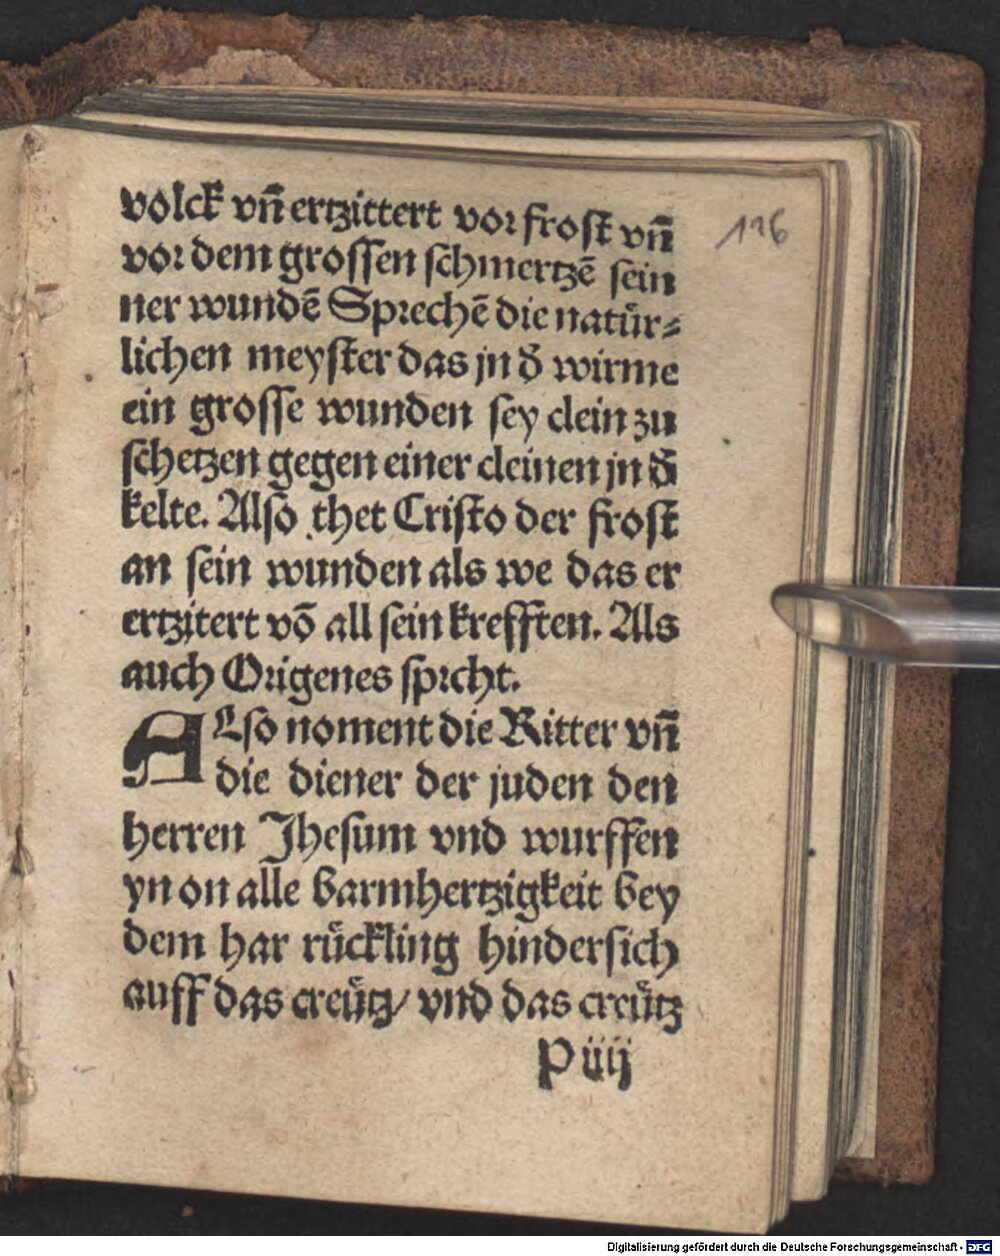 volck vñ ertzittert vor frost vñ
vor dem grossen schmertzē sein
ner wundē Sprechē die natür⸗
lichen meyster das jn d̄ wirme
ein grosse wunden sey clein zu
schetzen gegen einer cleinen jn d̄
kelte. Also thet Cristo der frost
an sein wunden als we das er
ertzitert vō all sein krefften. Als
auch Origenes sprcht.
ALso noment die Ritter vñ
die diener der juden den
herren Jhesum vnd wurffen
yn on alle barmhertzigkeit bey
dem har rückling hindersich
auff das creütz/ vnd das creütz
P iiij
136
Digitalisierung gefördert durch die Deutsche Forschungsgemeinschaft - DFG